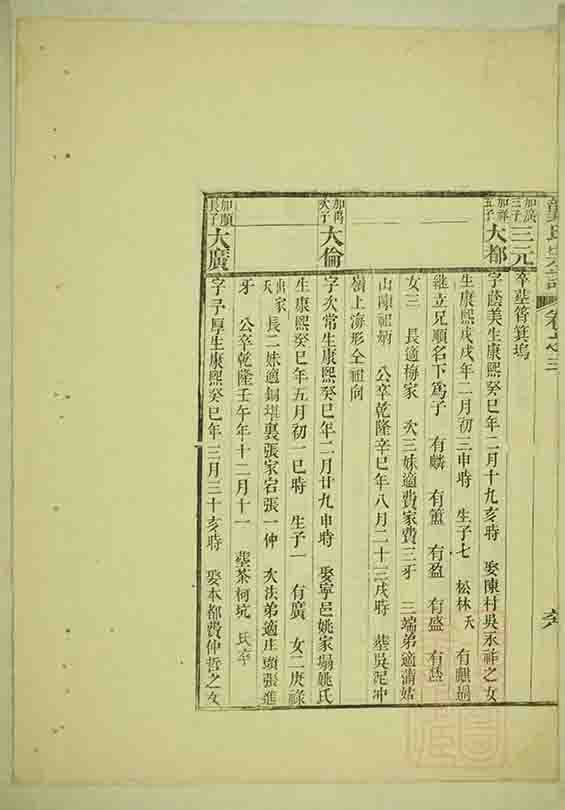 卷之三
加謨三子 三元 卒塟筲箕塢
加祥五子 大都 字蔭美生康熙癸巳年二月十九亥時 娶陳村吳永祚之女
生康熙戊戌年二月初三申時 生子七 松林夭 有麒過
繼立兄順名下爲子 有麟 有簠 有盈 有盛 有
女三 長適梅家 次三妹適費家費三牙 三端弟適蒲姑
山陳祖炳 公卒乾隆辛巳年八月二十三戌時 塟吳泥冲
嶺上海形仝祖向
次子 大倫 字次常生康熙癸巳年二月廿九申時 娶寧邑姚家塌姚氏
生康熙癸巳年五月初一巳時 生子一 有廣 女二庚祿
出家夭 長二妹適銅堪裏張家宕張一仲 次法弟適庄頭張進
牙 公卒乾隆壬午年十二月十一 塟茶柯坑 氏卒
加順長子 大廣 字予厚生康熙癸巳年三月三十亥時 娶本都費仲哲之女